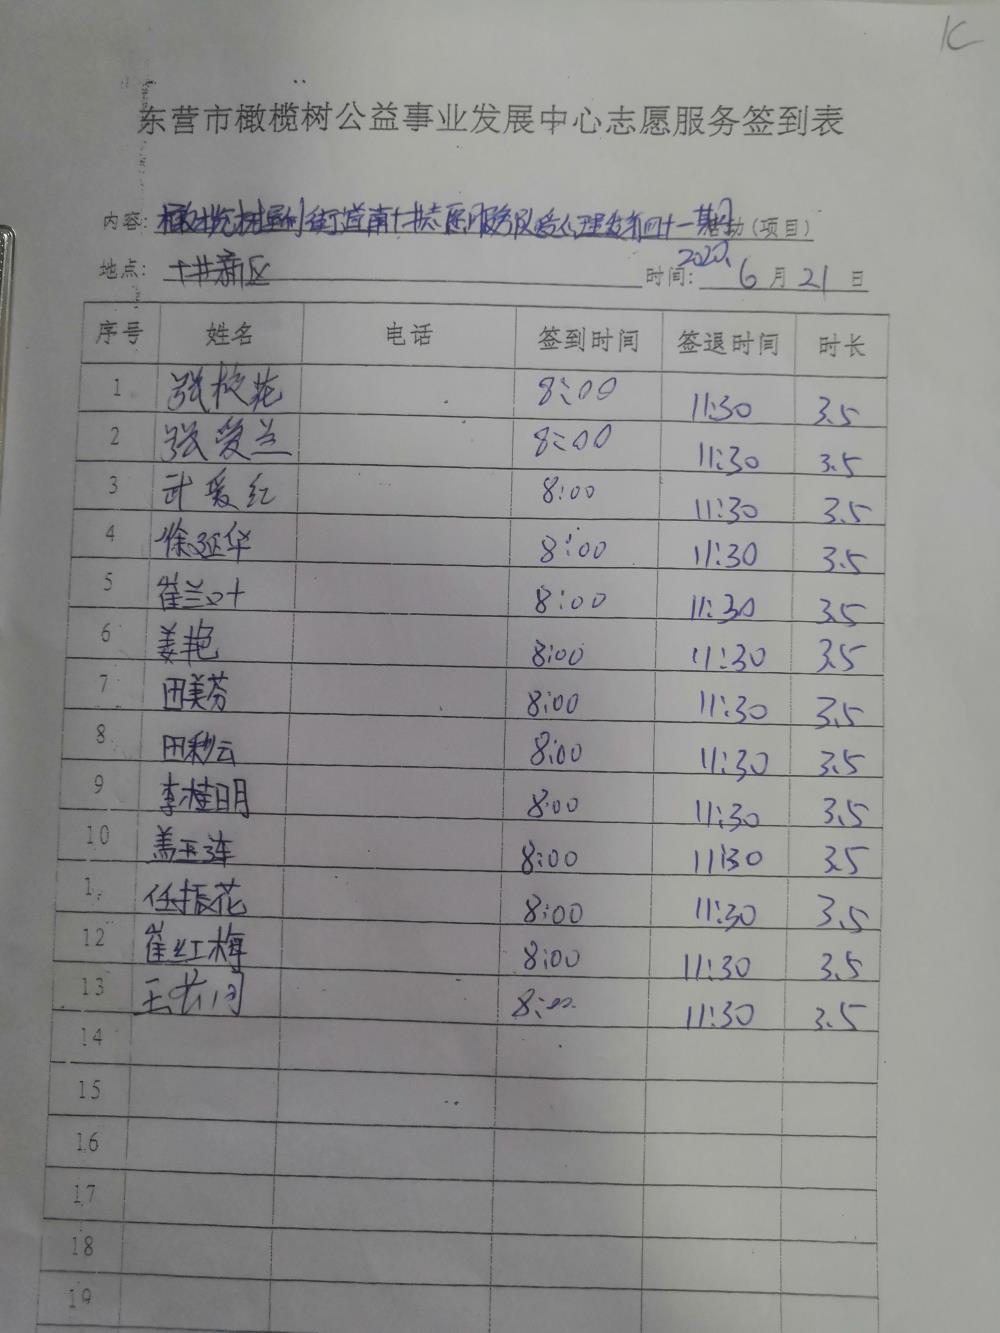 IC
东营市橄榄树公益事业发展中心志愿服务签到表
内容: 橄榄树垦利街道南十井志愿服务队爱心理发第四十一期活动(项目)
地点: 十井新区 时间: 2020. 6月21日
序号 姓名 电话 签到时间 签退时间 时长
1 张桂花 8:00 11:30 3.5
2 张爱兰 8:00 11:30 3.5
3 武爱红 8:00 11:30 3.5
4 徐延华 8:00 11:30 3.5
5 崔兰叶 8:00 11:30 3.5
6 姜艳 8:00 11:30 3.5
7 田美芬 8:00 11:30 3.5
8 田彩云 8:00 11:30 3.5
9 李桂明 8:00 11:30 3.5
10 盖玉连 8:00 11:30 3.5
1 任振花 8:00 11:30 3.5
12 崔红梅 8:00 11:30 3.5
13 王 8:00 11:30 3.5
14
15
16
17
18
19